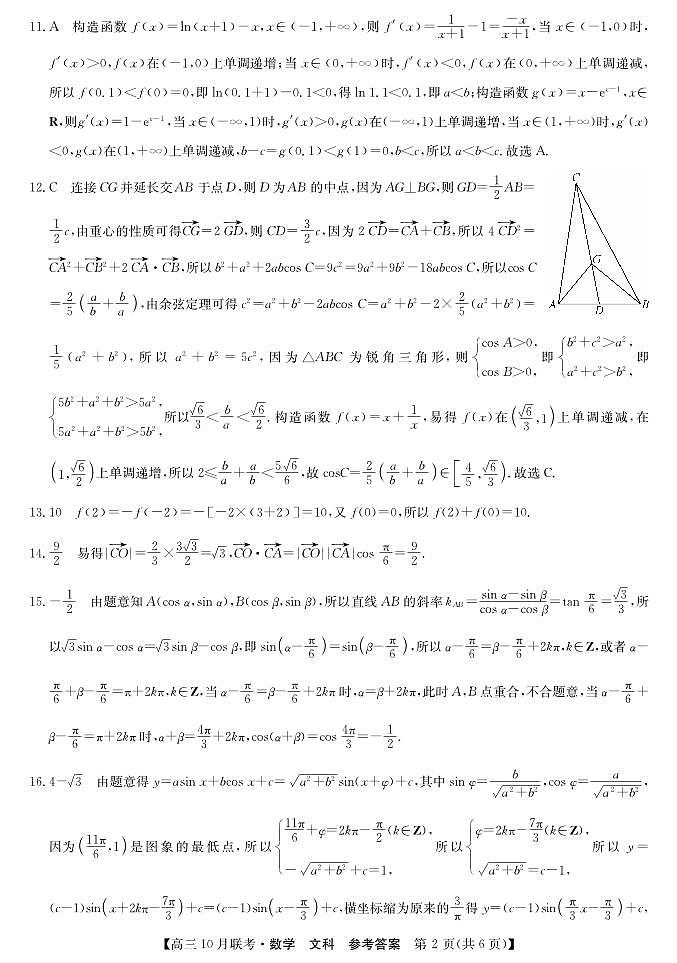 11. A 构造函数 f(x)=ln(x+1)-x,x∈(-1,+∞),则 f′(x)=1/(x+1)-1=-x/(x+1),当 x∈(-1,0)时,
f′(x)>0,f(x)在(-1,0)上单调递增;当 x∈(0,+∞)时,f′(x)<0,f(x)在(0,+∞)上单调递减,
所以 f(0.1)<f(0)=0,即 ln(0.1+1)-0.1<0,得 ln 1.1<0.1,即 a<b;构造函数 g(x)=x-e^{x-1},x∈
R,则g′(x)=1-e^{x-1},当 x∈(-∞,1)时,g′(x)>0,g(x)在(-∞,1)上单调递增,当 x∈(1,+∞)时,g′(x)
<0,g(x)在(1,+∞)上单调递减,b-c=g(0.1)<g(1)=0,b<c,所以 a<b<c.故选 A.
12. C 连接 CG 并延长交 AB 于点 D,则 D 为 AB 的中点,因为 AG⊥BG,则 GD=1/2 AB=
1/2 c,由重心的性质可得→CG=2→GD,则 CD=3/2 c,因为 2→CD=→CA+→CB,所以 4→CD²=
→CA²+→CB²+2→CA·→CB,所以 b²+a²+2abcos C=9c²=9a²+9b²-18abcos C,所以cos C
=2/5(a/b+b/a),由余弦定理可得 c²=a²+b²-2abcos C=a²+b²-2×2/5(a²+b²)=
1/5(a²+b²),所以 a²+b²=5c²,因为△ABC 为锐角三角形,则{cos A>0, cos B>0,即{b²+c²>a², a²+c²>b²,即
{5b²+a²+b²>5a², 5a²+a²+b²>5b²,所以√6/3<b/a<√6/2.构造函数 f(x)=x+1/x,易得 f(x)在(√6/3,1)上单调递减,在
(1,√6/2)上单调递增,所以 2≤b/a+a/b<5√6/6,故 cosC=2/5(a/b+b/a)∈[4/5,√6/3).故选 C.
C
G
A
D
B
13. 10 f(2)=-f(-2)=-[-2×(3+2)]=10,又 f(0)=0,所以 f(2)+f(0)=10.
14. 9/2 易得|→CO|=2/3×3√3/2=√3,→CO·→CA=|→CO||→CA|cos π/6=9/2.
15. -1/2 由题意知 A(cos α,sin α),B(cos β,sin β),所以直线 AB 的斜率 k_{AB}=(sin α-sin β)/(cos α-cos β)=tan π/6=√3/3,所
以√3sin α-cos α=√3sin β-cos β,即 sin(α-π/6)=sin(β-π/6),所以 α-π/6=β-π/6+2kπ,k∈Z,或者 α-
π/6+β-π/6=π+2kπ,k∈Z,当 α-π/6=β-π/6+2kπ 时,α=β+2kπ,此时 A,B 点重合,不合题意,当 α-π/6+
β-π/6=π+2kπ 时,α+β=4π/3+2kπ,cos(α+β)=cos 4π/3=-1/2.
16. 4-√3 由题意得 y=asin x+bcos x+c=√(a²+b²)sin(x+φ)+c,其中 sin φ=b/√(a²+b²),cos φ=a/√(a²+b²),
因为(11π/6,1)是图象的最低点,所以{11π/6+φ=2kπ-π/2(k∈Z), -√(a²+b²)+c=1,所以{φ=2kπ-7π/3(k∈Z), √(a²+b²)=c-1,所以 y=
(c-1)sin(x+2kπ-7π/3)+c=(c-1)sin(x-π/3)+c,横坐标缩为原来的3/π得 y=(c-1)sin(π/3 x-π/3)+c,
【高三 10 月联考·数学 文科 参考答案 第 2 页(共 6 页)】